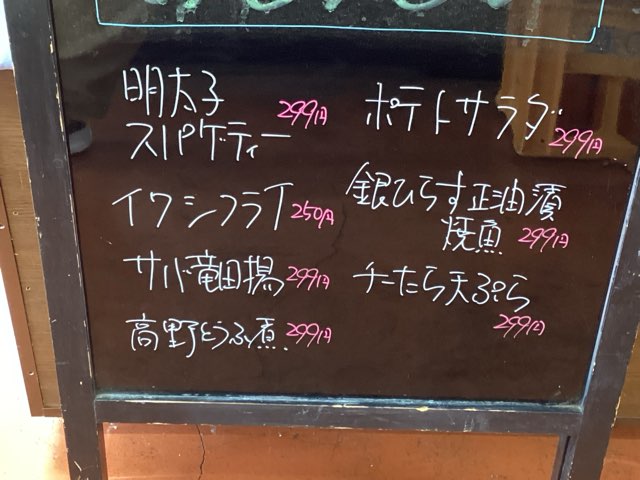 明太子
スパゲティー 299円
イワシフライ 250円
サバ竜田揚 299円
高野とうふ煮 299円
ポテトサラダ 299円
銀ひらす正油漬
焼魚 299円
チーたら天ぷら
299円